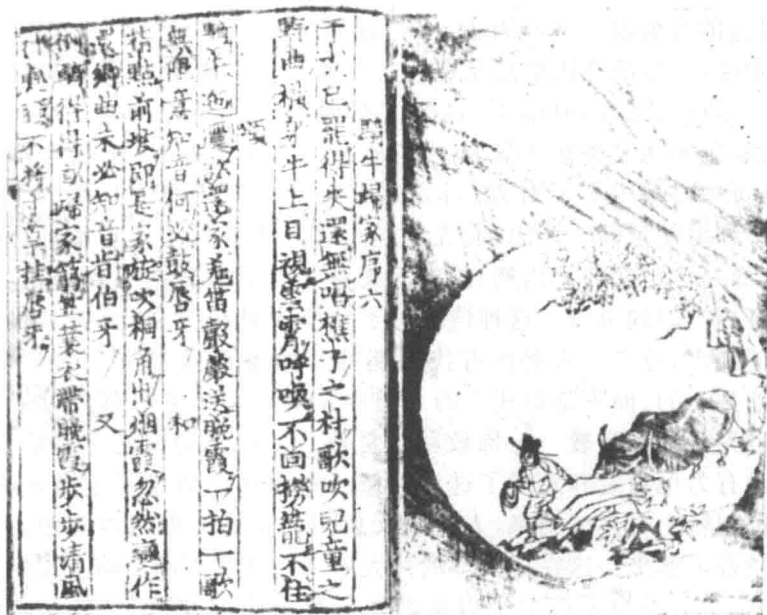 騎牛歸家序六
干戈已罷得失還無唱樵子之村歌吹兒童之
野曲橫身牛上目視雲霄呼喚不回撈籠不住
頌
騎牛迤邐欲還家羌笛聲聲送晚霞一拍一歌
無限意知音何必鼓唇牙 和
指點前坡即是家旋吹桐角出烟霞忽然變作
還鄉曲未必知音肯伯牙 又
倒騎得得自歸家箬笠蓑衣帶晚霞步步清風
行處穩不將寸草挂唇牙